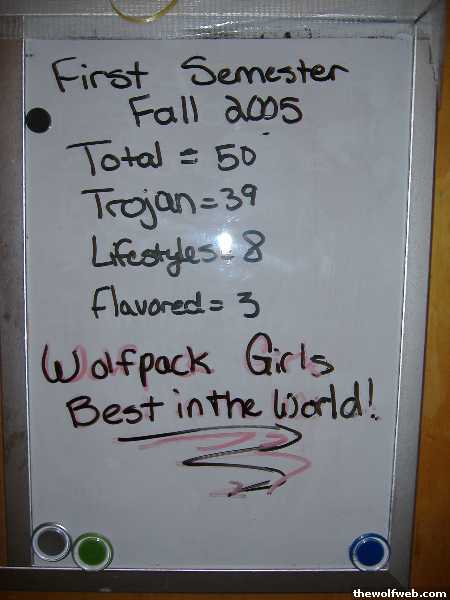 First Semester
Fall 2005
Total = 50
Trojan = 39
Lifestyles = 8
Flavored = 3
Wolfpack Girls
Best in the World!
thewolfweb.com